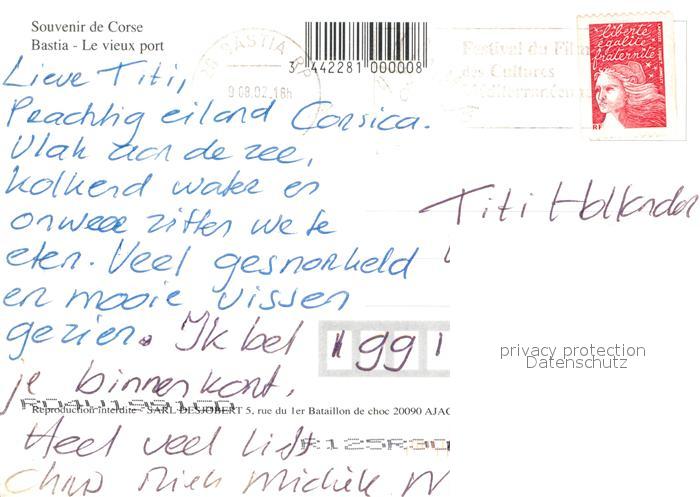 Souvenir de Corse
Bastia - Le vieux port
3 442281 000008
BASTIA
9.08.02.16h
Festival du Film
des Cultures
Méditerranéennes
liberté
égalité
fraternité
RF
Lieve Titi,
Prachtig eiland Corsica.
Vlak aan de zee,
kolkend water en
onweer zitten we te
eten. Veel gesnorkeld
en mooie vissen
gezien. Ik bel
je binnenkort.
Heel veel liefs
Titi Hollander
1991
privacy protection
Datenschutz
Reproduction interdite - SARL DESJOBERT 5, rue du 1er Bataillon de choc 20090 AJAC